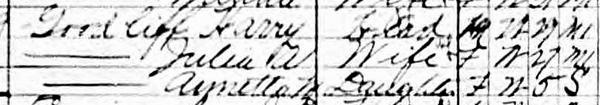 Goodcliff Harry Head M W 27 M1
—— Julia A Wife F W 27 M1
—— Aynetta M Daughter F W 5 S